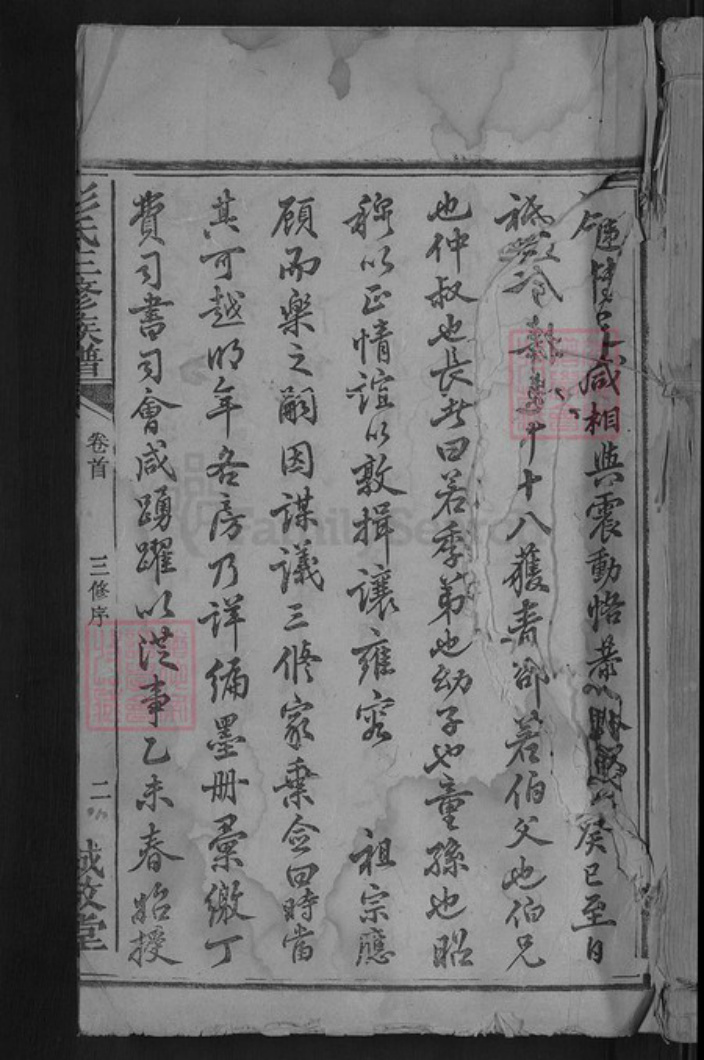 咸相與震動恪恭 癸巳至日
祗 十八穫者卻若伯父也伯兄
也仲叔也長者曰若季弟也幼子也童孫也昭
穆以正情誼以敦揖讓雍容 祖宗應
顧而樂之嗣因謀議三修家乘僉曰時當
其可越明年各房乃詳編墨冊彙繳丁
費司書司會咸踴躍以從事乙未春始授
彭氏三修族譜 卷首 三修序 二 誠敬堂
FamilySearch